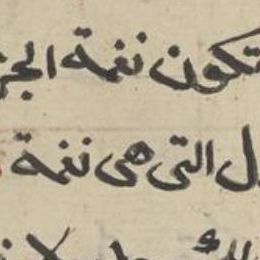 تكون نغمة الجز
ل التى هى نغمة